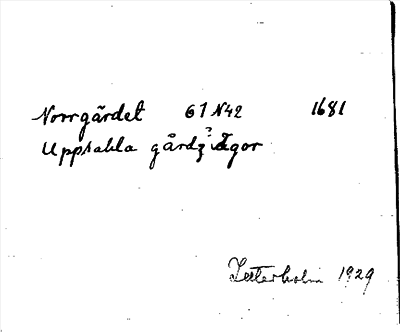 Norrgärdet 61 N42 1681
Uppsahla gårdz ? Ägor
Zetterholm 1929